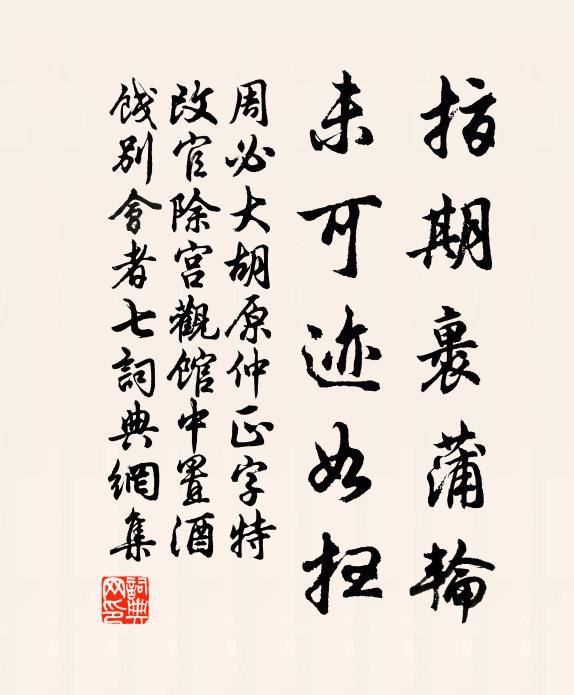 指期裹蒲輪
未可迹如
周必大胡原仲正字特
改官除宮觀館中置酒
餞別會者七詞典網集
詞典網印